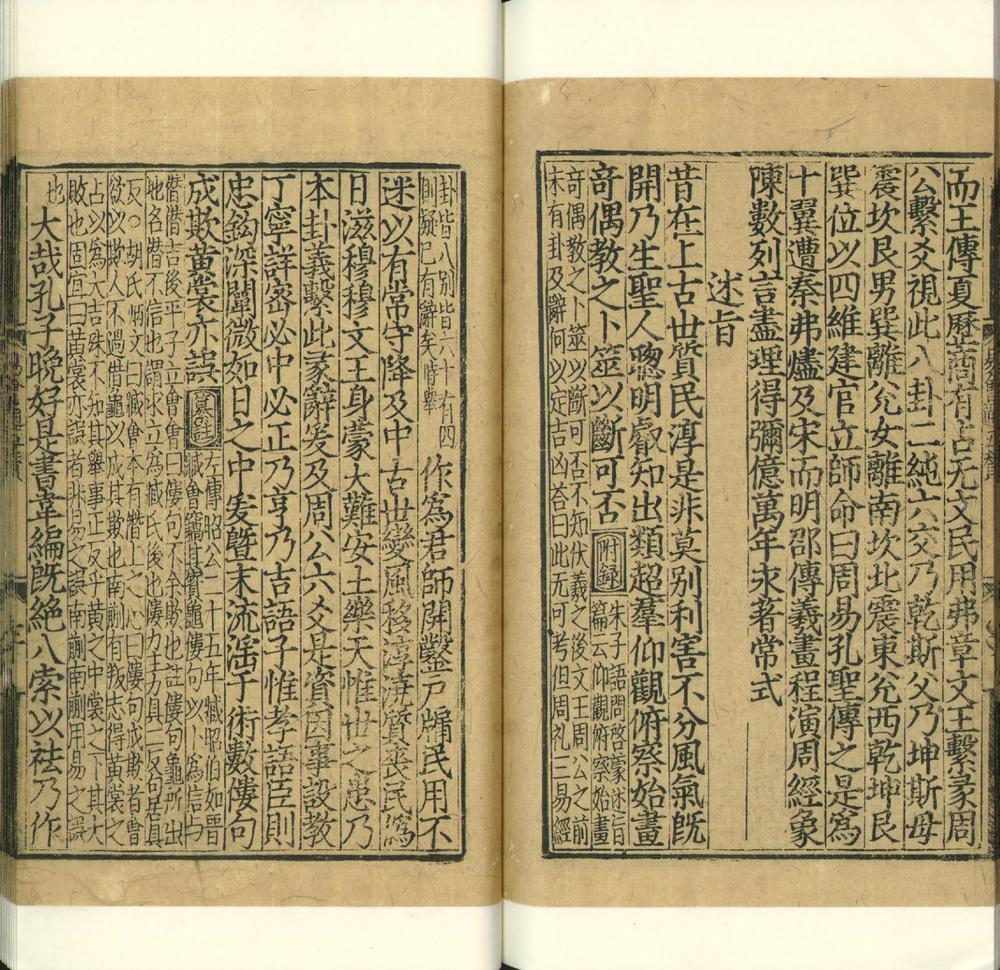 而王傳夏歷商有占无文民用弗章文王繫彖周
公繫爻視此八卦二純六交乃乾斯父乃坤斯母
震坎艮男巽離兌女離南坎北震東兌西乾坤艮
巽位以四維建官立師命曰周易孔聖傳之是爲
十翼遭秦弗燼及宋而明邵傳羲畫程演周經象
陳數列言盡理得彌億萬年永著常式
述旨
昔在上古世質民淳是非莫別利害不分風氣既
開乃生聖人聰明叡知出類超羣仰觀俯察始畫
奇偶教之卜筮以斷可否附録朱子語問啓蒙述旨
篇云仰觀俯察始畫
奇偶教之卜筮以斷可否不知伏羲之後文王周公之前
未有卦及辭何以定吉凶荅曰此无可考但周礼三易經
卦皆八別皆六十有四
則疑已有辭矣時舉作爲君師開鑿戶牖民用不
迷以有常守降及中古世變風移淳澆質喪民僞
日滋穆穆文王身蒙大難安土樂天惟世之患乃
本卦義繫此彖辭爰及周公六爻是資因事設教
丁寧詳密必中必正乃亨乃吉語子惟孝語臣則
忠鉤深闡微如日之中爰曁末流滛于術數僂句
成欺黃裳亦誤纂註左傳昭公二十五年臧昭伯如晉
臧會竊其寶龜僂句以卜爲信与
僭僭吉後平子立會會曰僂句不余欺也註僂句龜所出
地名僭不信也謂求立爲臧氏後也
反○胡氏炳文曰臧會本有僭上之心曰僂句成欺者會
欲以欺人不過借龜以成其欺也南蒯有叛志得黃裳之
占以爲大吉殊不知其舉事正反乎黃之中裳之下其大
敗也固宜曰黃裳亦誤者非易之誤南蒯南蒯用易之誤
也大哉孔子晚好是書韋編既絕八索以祛乃作